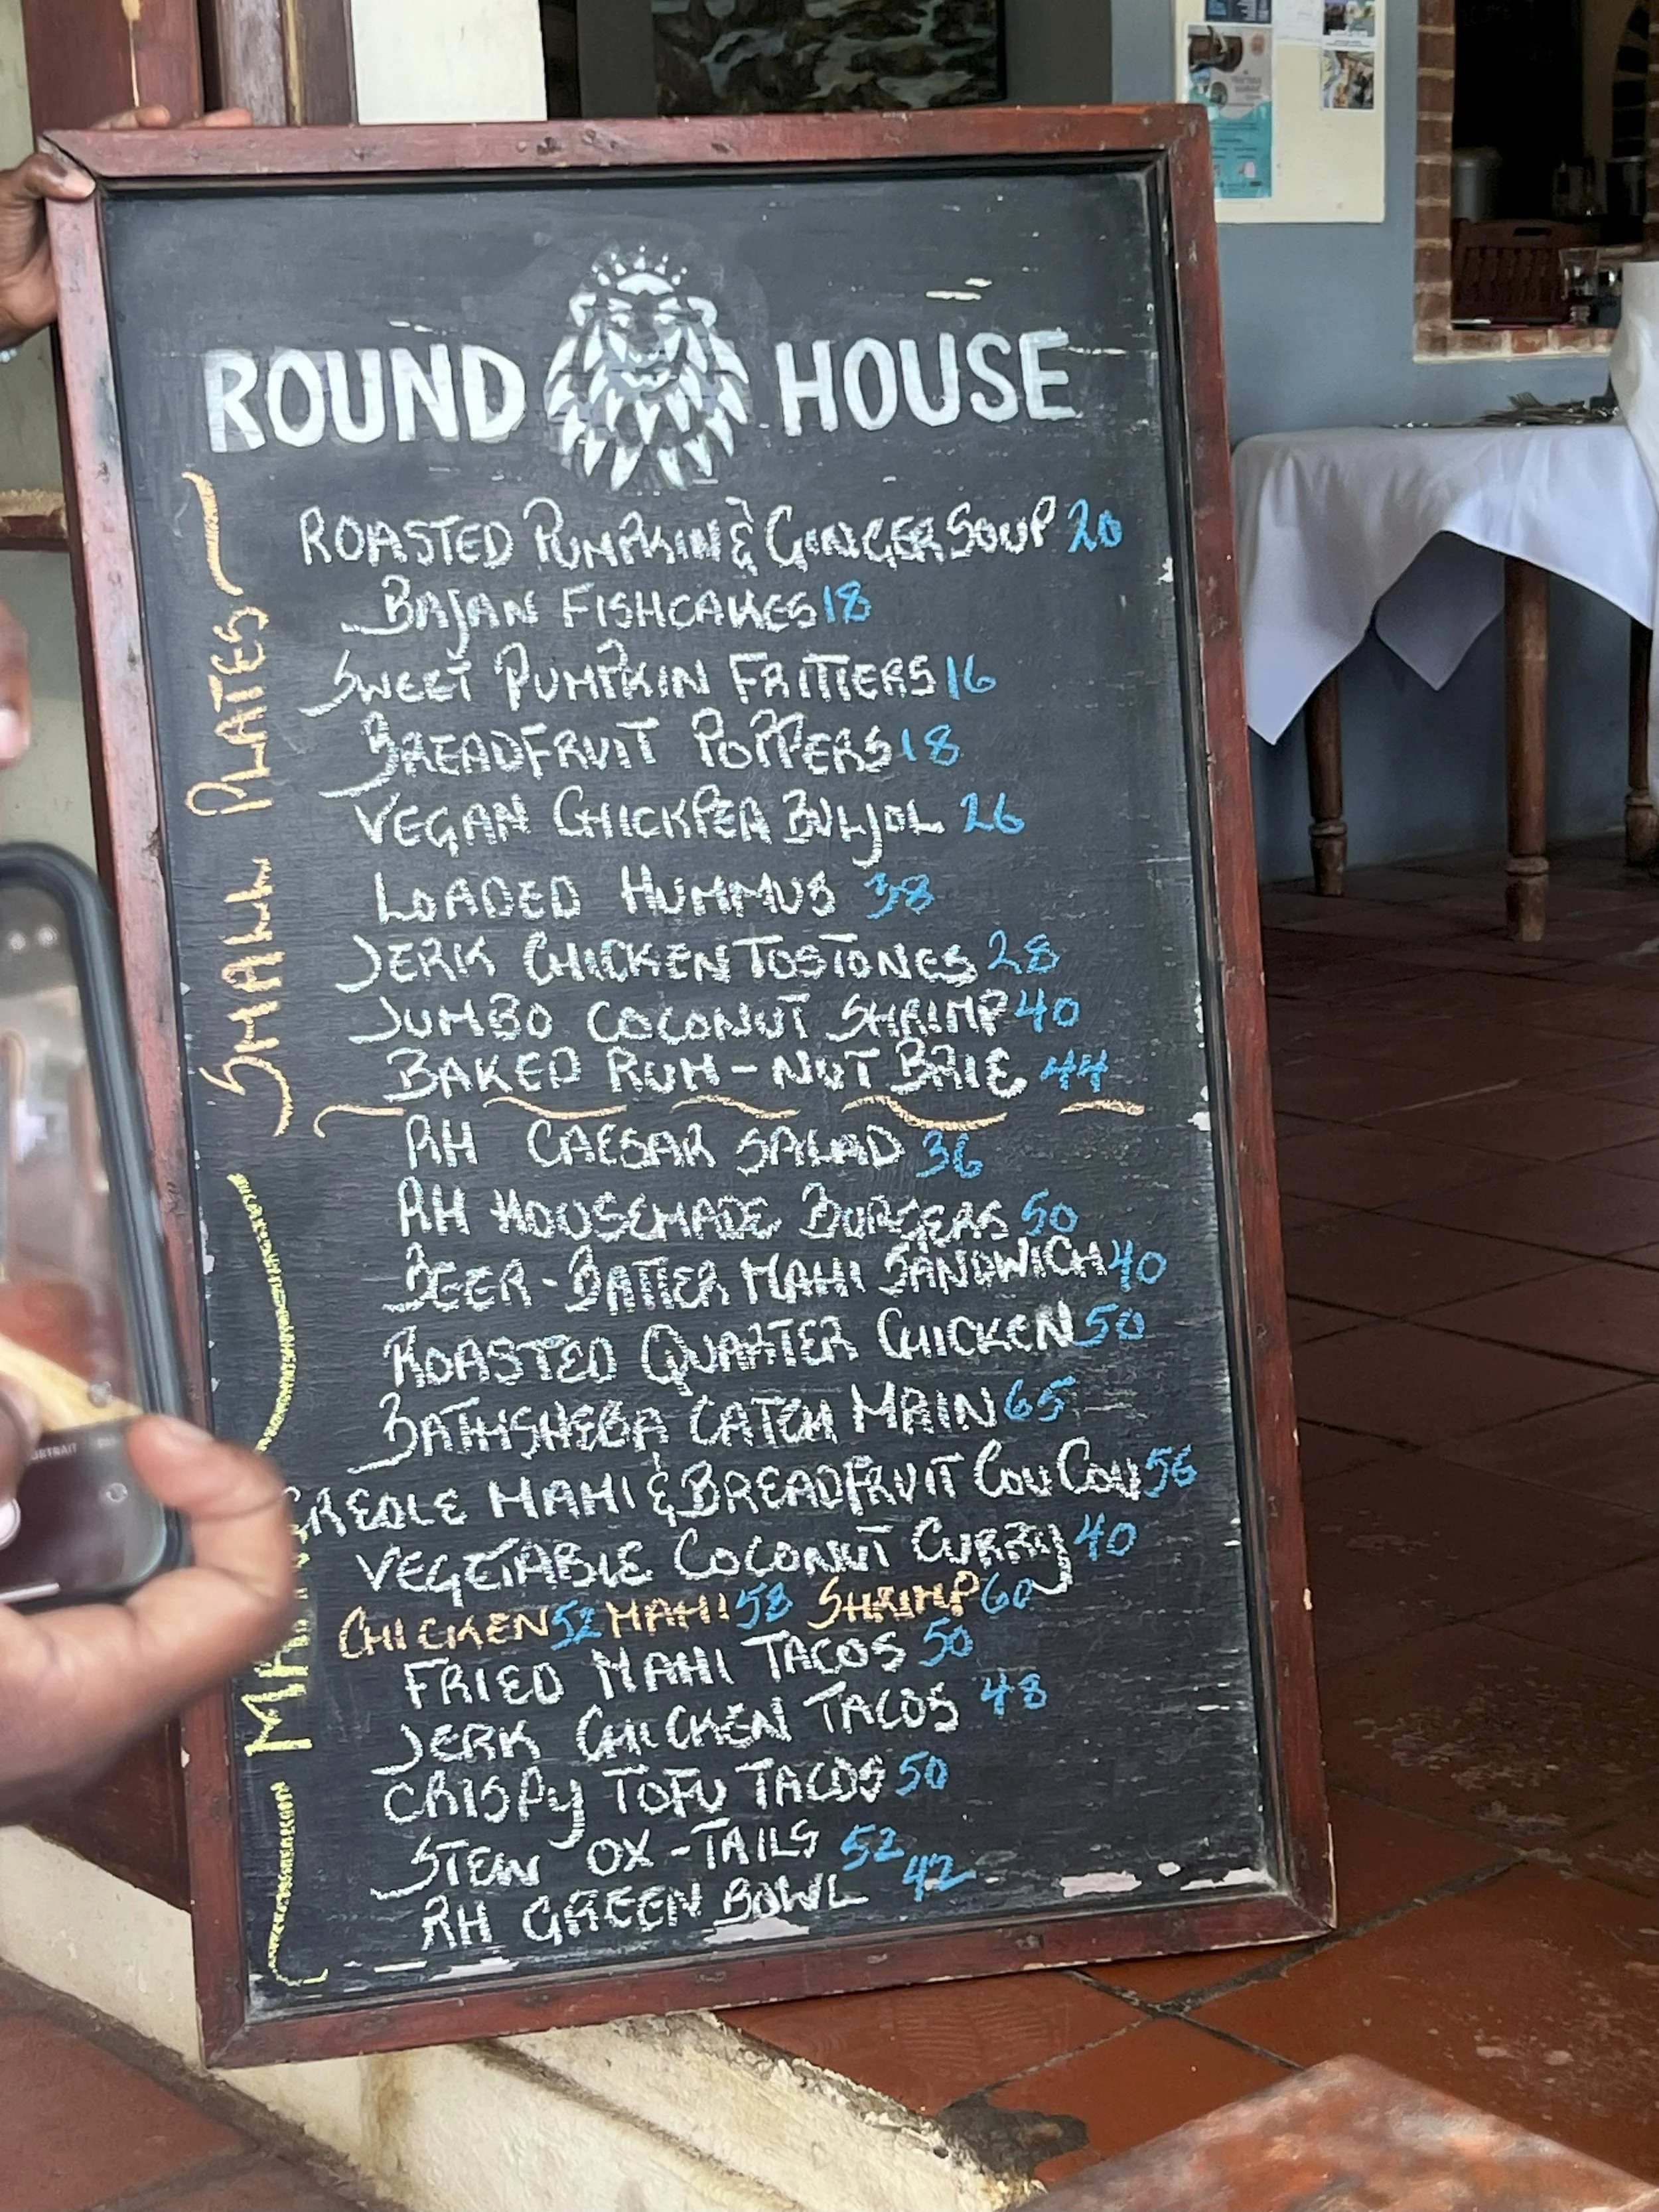 ROUND HOUSE
SMALL PLATES
ROASTED PUMPKIN & GINGER SOUP 20
BAJAN FISHCAKES 18
SWEET PUMPKIN FRITTERS 16
BREADFRUIT POPPERS 18
VEGAN CHICKPEA BULJOL 26
LOADED HUMMUS 38
JERK CHICKEN TOSTONES 28
JUMBO COCONUT SHRIMP 40
BAKED RUM-NUT BRIE 44
RH CAESAR SALAD 36
RH HOUSEMADE BURGERS 50
BEER-BATTER MAHI SANDWICH 40
ROASTED QUARTER CHICKEN 50
BATHSHEBA CATCH MAIN 65
CREOLE MAHI & BREADFRUIT COU COU 56
VEGETABLE COCONUT CURRY 40
CHICKEN 52 MAHI 58 SHRIMP 60
FRIED MAHI TACOS 50
JERK CHICKEN TACOS 48
CRISPY TOFU TACOS 50
STEW OX-TAILS 52
RH GREEN BOWL 42